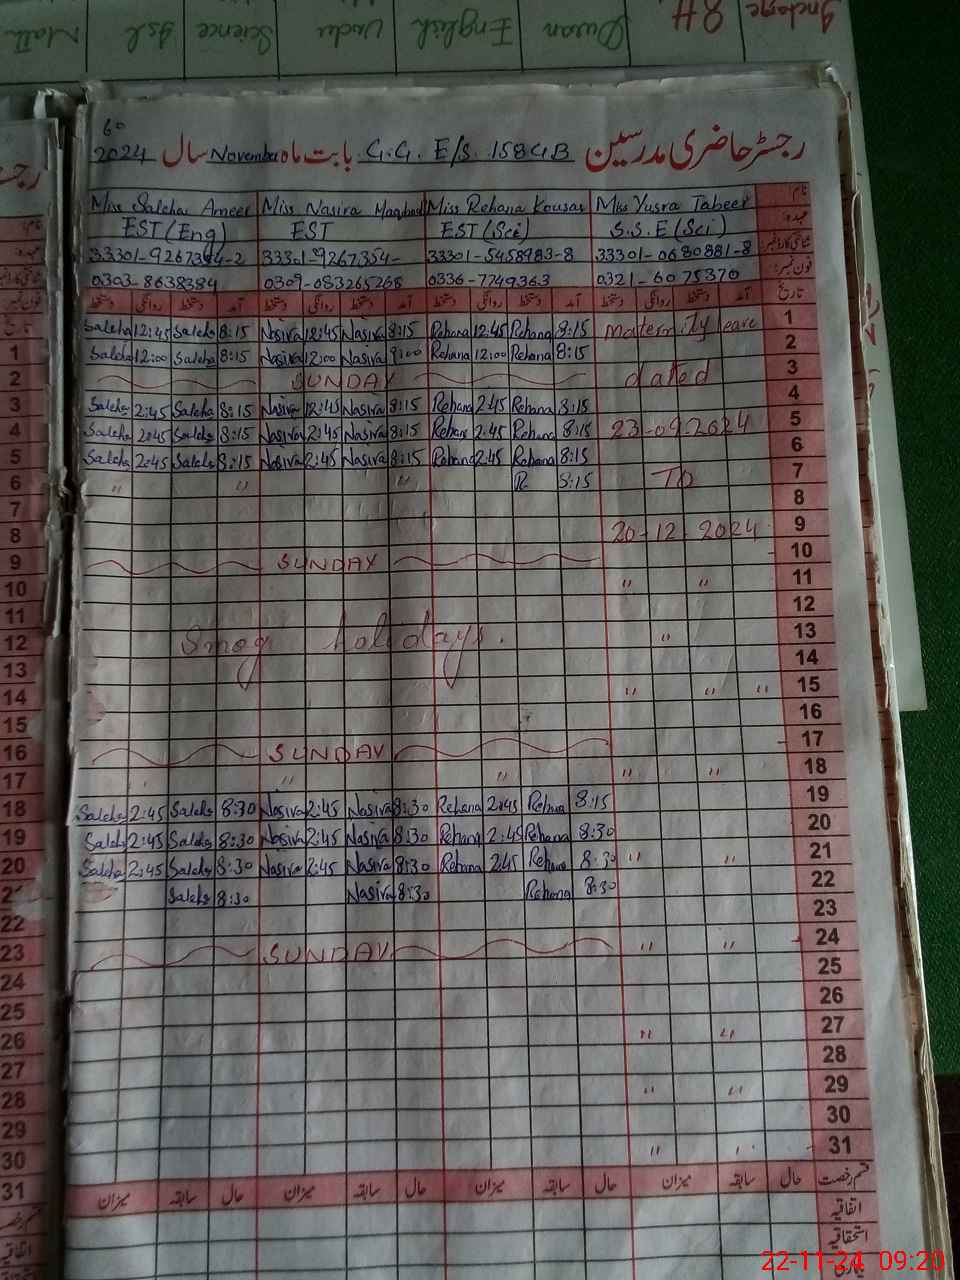 Incharge 8H
Quran English Urdu Science Isl Math
60
رجسٹر حاضری مدرسین G.G. E/S. 158GB بابت ماہ November سال 2024
نام Miss Saleha Ameer Miss Nasira Maqbool Miss Rehana Kousar Miss Yusra Tabeer
عہدہ EST (Eng) EST EST (Sci) S.S.E (Sci)
شناختی کارڈ نمبر 33301-9267394-2 33301-9267354- 33301-5458983-8 33301-0680881-8
فون نمبر: 0303-8638384 0309-083265268 0336-7749363 0321-6075370
تاریخ آمد دستخط روانگی دستخط آمد دستخط روانگی دستخط آمد دستخط روانگی دستخط آمد دستخط روانگی دستخط
Saleha 12:45 Saleha 8:15 Nasira 12:45 Nasira 8:15 Rehana 12:45 Rehana 8:15 Maternity leave 1
1 Saleha 12:00 Saleha 8:15 Nasira 12:00 Nasira 9:00 Rehana 12:00 Rehana 8:15 2
2 SUNDAY dated 3
3 Saleha 2:45 Saleha 8:15 Nasira 12:45 Nasira 8:15 Rehana 2:45 Rehana 8:15 4
4 Saleha 2:45 Saleha 8:15 Nasira 2:45 Nasira 8:15 Rehana 2:45 Rehana 8:15 23-09-2024 5
5 Saleha 2:45 Saleha 8:15 Nasira 2:45 Nasira 8:15 Rehana 2:45 Rehana 8:15 6
6 " " " R 8:15 TO 7
7 8
8 20-12-2024 9
9 SUNDAY 10
10 " " 11
11 12
12 Smog holidays. " 13
13 14
14 " " " 15
15 16
16 SUNDAY 17
17 " " " " 18
18 Saleha 2:45 Saleha 8:30 Nasira 2:45 Nasira 8:30 Rehana 2:45 Rehana 8:15 19
19 Saleha 2:45 Saleha 8:30 Nasira 2:45 Nasira 8:30 Rehana 2:45 Rehana 8:30 20
20 Saleha 2:45 Saleha 8:30 Nasira 2:45 Nasira 8:30 Rehana 2:45 Rehana 8:30 " " 21
2 Saleha 8:30 Nasira 8:30 Rehana 8:30 22
22 23
23 SUNDAY " " 24
24 25
25 26
26 " " 27
27 28
28 " " 29
29 30
30 " " 31
31 قسم رخصت حال سابقہ میزان حال سابقہ میزان حال سابقہ میزان حال سابقہ میزان
اتفاقیہ
استحقاقیہ
22-11-24 09:20